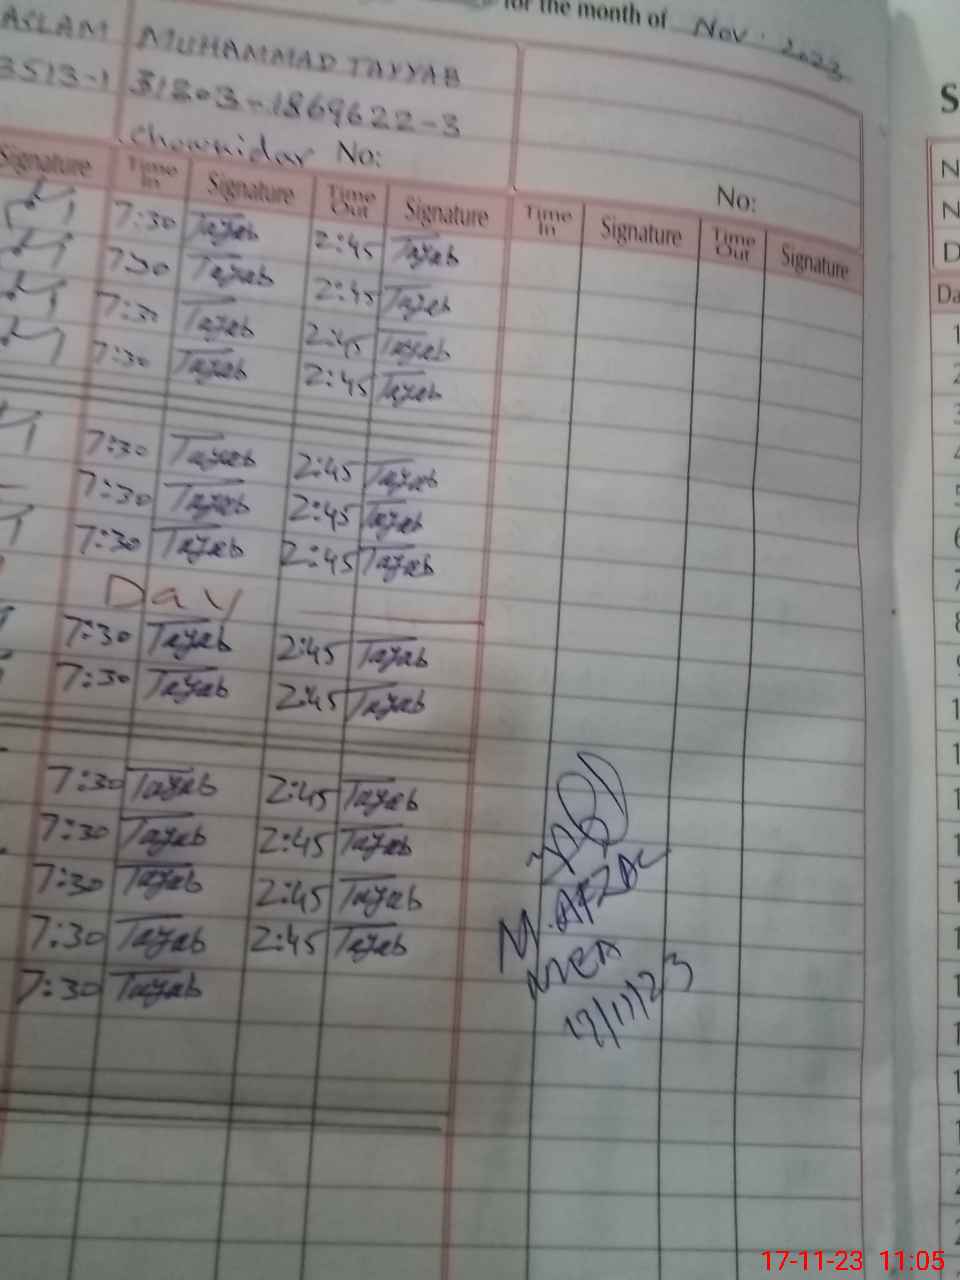 for the month of Nov. 2023
ASLAM MUHAMMAD TAYYAB
3513-1 31203-1869622-3
chowkidar No: No:
Signature Time In Signature Time Out Signature Time In Signature Time Out Signature
7:30 Tayab 2:45 Tayab
7:30 Tayab 2:45 Tayab
7:30 Tayab 2:45 Tayab
7:30 Tayab 2:45 Tayab
7:30 Tayab 2:45 Tayab
7:30 Tayab 2:45 Tayab
7:30 Tayab 2:45 Tayab
Day
7:30 Tayab 2:45 Tayab
7:30 Tayab 2:45 Tayab
7:30 Tayab 2:45 Tayab
7:30 Tayab 2:45 Tayab
7:30 Tayab 2:45 Tayab
7:30 Tayab 2:45 Tayab
7:30 Tayab
M. AFZAL
MEA
17/11/23
17-11-23 11:05